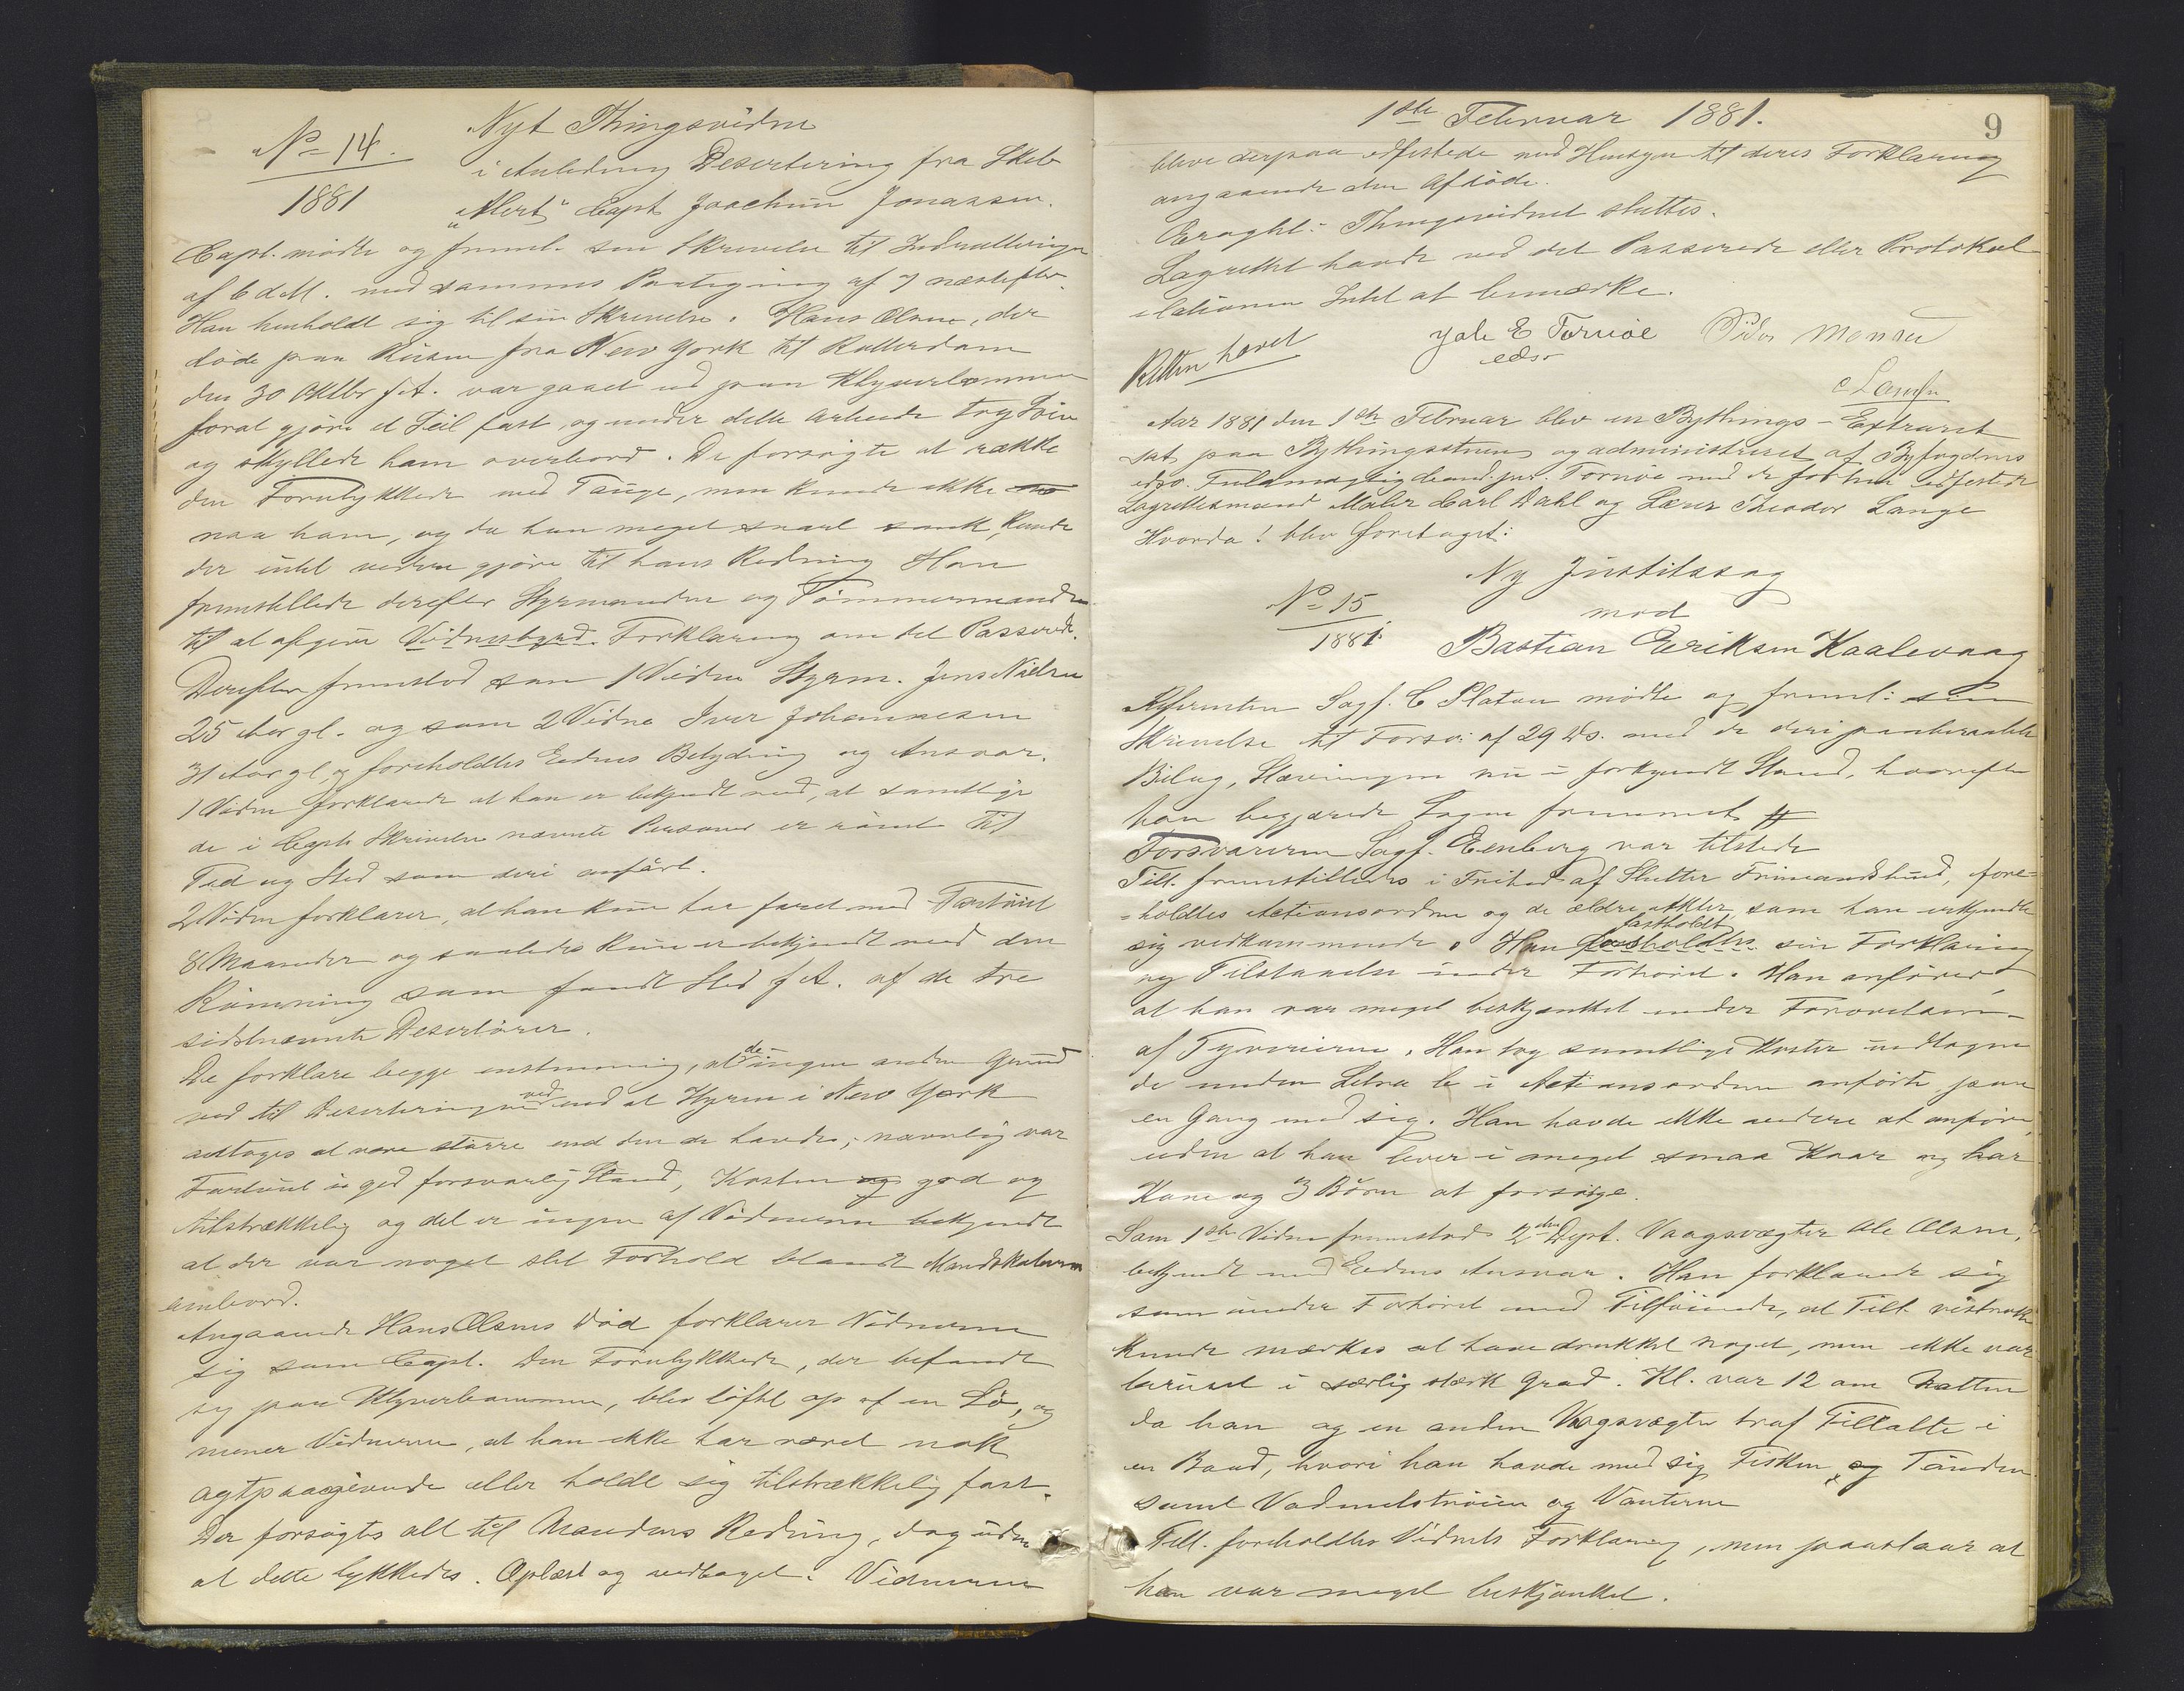 No 14.
1881
Nyt Thingsvidne
i Anledning Desertering fra Skib
"Alert" Capt Joachim Jonassen.
Capt. mødte og freml. sin Skrivelse til Indrulleringen
af 6 d.M. med sammes Paategning af 7 næstefter.
Han henholdt sig til sin Skrivelse. Hans Olsen, der
døde paa Reisen fra New York til Rotterdam
den 30 Oktbr f.A. var gaaet ud paa Klyverbommen
forat gjøre et Seil fast, og under dette Arbeide tog Søen
og skyllede ham overbord. De forsøgte at række
den Forulykkede med Tauge, men kunde ikke
naa ham, og da han meget snart sank, kunde
der intet videre gjøre til hans Redning Han
fremstillede derefter Styrmanden og Tømmermanden
til at afgive Vidnesbyrd. Forklaring om det Passerede.
Derefter fremstod som 1 Vidne Styrm. Jens Nielsen
25 Aar gl. og som 2 Vidne Iver Johannesen
31 Aar gl. og foreholdtes Eedens Betydning og Ansvar.
1 Vidne forklarede at han er bekjendt med, at samtlige
de i Capts Skrivelse nævnte Personer er rømt til
Tid og Sted som deri anført.
2 Vidne forklarer, at han kun har faret med Fartøiet
8 Maaneder og saaledes kun er bekjendt med den
Rømning som fandt Sted f.A. af de tre
sidstnævnte Desertører.
De forklare begge enstemmig, at de ingen anden Grund
ved til Deserteringen ved end at Hyren i New York
antages at være større end den de havde; nævnlig var
Fartøiet i god forsvarlig Stand, Kosten og god og
tilstrækkelig og det er ingen af Vidnerne bekjendt
at der var noget slet Forhold blandt Mandskabet
ombord.
Angaaende Hans Olsens Død forklarer Vidnerne
sig som Capt. Den Forulykkede, der befandt
sig paa Klyverbommen, blev løftet op af en Sø, og
mener Vidnerne, at han ikke har været nok
agtpaagivende eller holdt sig tilstrækkelig fast.
Der forsøgtes alt til Mandens Redning, dog uden
at dette lykkedes. Oplæst og vedtaget. Vidnerne
1ste Februar 1881.
9
bleve derpaa edfestede med Hensyn til deres Forklaring
angaaende den Afdøde.
Eragtet: Thingsvidnet sluttes.
Lagrettet havde ved det Passerede eller Protokol-
lationen Intet at bemærke.
Retten hævet
Jale E Tornøe
edsv
Peder Monsen
C Lange
Aar 1881 den 1ste Februar blev en Bythings-Extraret
sat paa Bythingsstuen og administreret af Byfogdens
edsv. Fuldmægtig cand. jur. Tornøe med de forhen edfestede
Lagrettesmænd Maler Carl Dahl og Lærer Theodor Lange
Hvorda! blev foretaget:
No 15
1881
Ny Justitssag
mod
Bastian Eriksen Kaalevaag
Aktor Sagf. C Platou mødte og freml: sin
Skrivelse til Forsv: af 29 Ds. med de deri paaberaabte
Bilag, Stævningen nu i forkyndt Stand, hvorefter
han begjærede Sagen fremmet
Forsvareren Sagf. Eenberg var tilstede
Tilt. fremstilledes i Frihed af Slutter Frimandslund, fore-
=holdtes Actionsordren og de ældre Akter, som han erkjendte
sig vedkommende. Han forsholdtes fastholdt sin Forklaring
og Tilstaaelse under Forhøret. Han anfører
at han var meget beskjænket under Forøvelsen
af Tyverierne. Han tog samtlige Koster undtagen
de under Litra b i Actionsordren anførte paa
en Gang med sig. Han havde ikke videre at anføre,
uden at han lever i meget smaa Kaar og har
Kone og 3 Børn at forsørge.
Som 1ste Vidne fremstod 2den Dept. Vaagsvægter Ole Olsen,
bekjendt med Eedens Ansvar. Han forklarede sig
som under Forhøret med Tilføiende, at Tilt. vistnok
kunde mærkes at have drukket noget, men ikke var
beruset i særlig stærk Grad. Kl. var 12 om Natten
da han og en anden Vagsvægter traf Tiltalte i
en Baad, hvori han havde med sig Fisken og Tønden
samt Vadmelstrøien og Vanterne
Tilt. foreholdtes Vidnets Forklaring, men paastaar at
han var meget beskjænket.